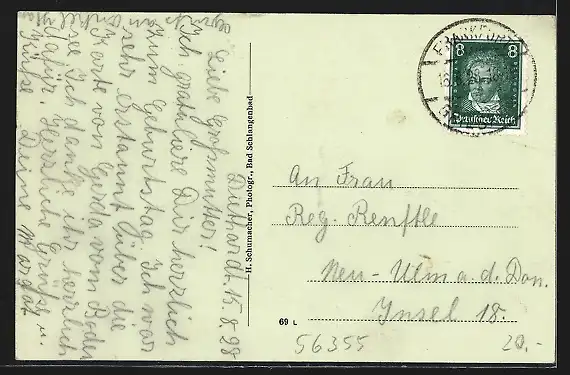 Dickhardt, 15.8.28
Liebe Großmutter!
Ich gratuliere Dir herzlich
zum Geburtstag. Ich war
sehr erstaunt über die
Karte von Gerda vom Boden
see. Ich danke ihr herzlich
dafür. Herzliche Grüße u.
Küsse Deine
H. Schumacher, Photogr., Bad Schlangenbad
FRANKFURT
8 8
Deutsches Reich
An Frau
Reg. Renftle
Neu-Ulm a. d. Don.
Insel 18.
69 L
56355
20.-